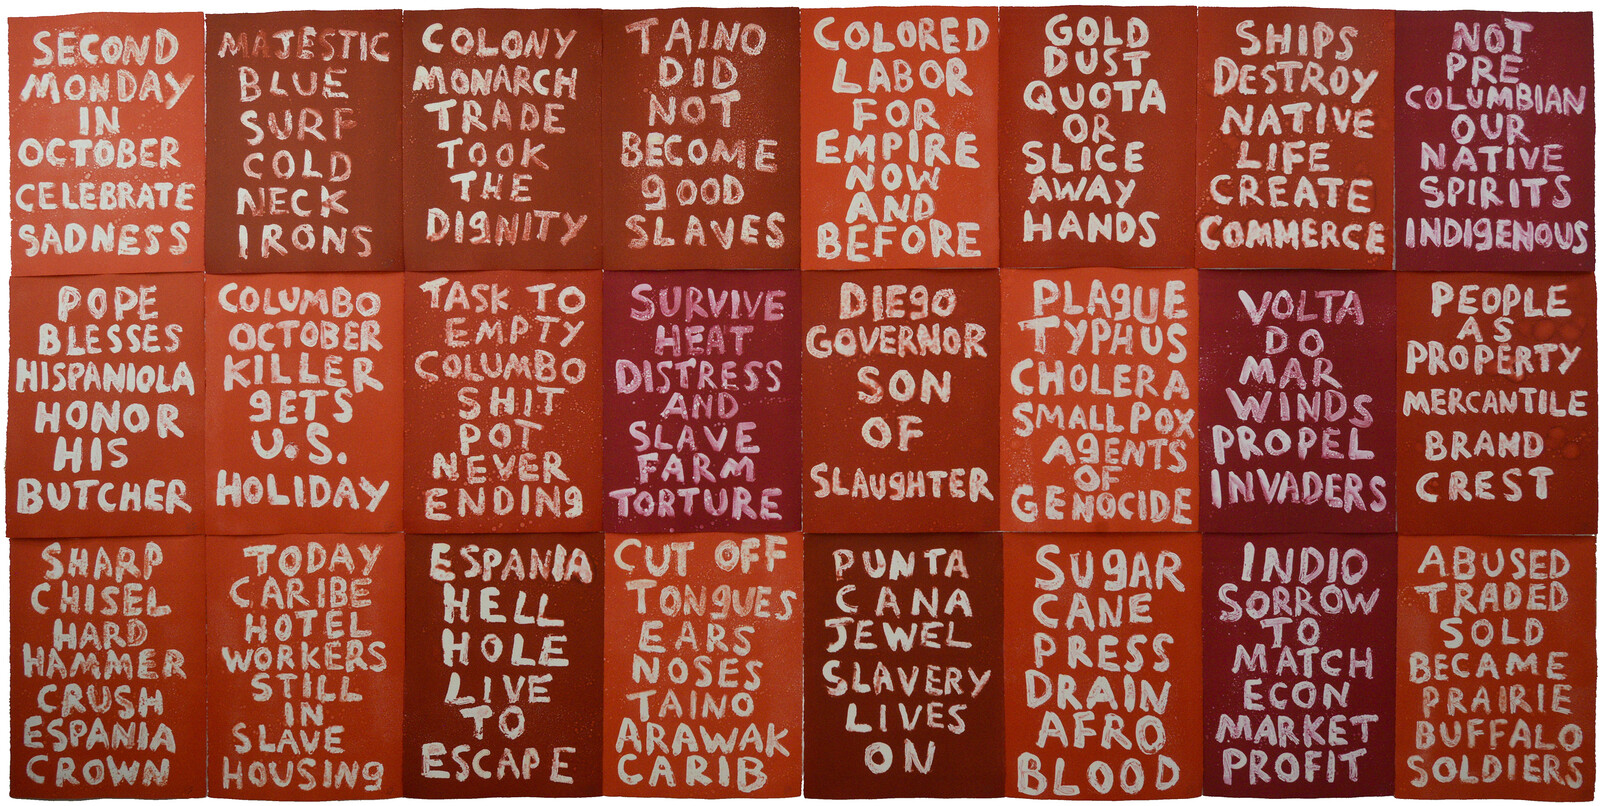 SECOND
MONDAY
IN
OCTOBER
CELEBRATE
SADNESS
MAJESTIC
BLUE
SURF
COLD
NECK
IRONS
COLONY
MONARCH
TRADE
TOOK
THE
DIgNITY
TAINO
DID
NOT
BECOME
gOOD
SLAVES
COLORED
LABOR
FOR
EMPIRE
NOW
AND
BEFORE
GOLD
DUST
QUOTA
OR
SLICE
AWAY
HANDS
SHIPS
DESTROY
NATIVE
LIFE
CREATE
COMMERCE
NOT
PRE
COLUMBIAN
OUR
NATIVE
SPIRITS
INDIgENOUS
POPE
BLESSES
HISPANIOLA
HONOR
HIS
BUTCHER
COLUMBO
OCTOBER
KILLER
gETS
U.S.
HOLIDAY
TASK TO
EMPTY
COLUMBO
SHIT
POT
NEVER
ENDINg
SURVIVE
HEAT
DISTRESS
AND
SLAVE
FARM
TORTURE
DIEgO
GOVERNOR
SON
OF
SLAUgHTER
PLAgUE
TYPHUS
CHOLERA
SMALLPOX
AgENTS
OF
GENOCIDE
VOLTA
DO
MAR
WINDS
PROPEL
INVADERS
PEOPLE
AS
PROPERTY
MERCANTILE
BRAND
CREST
SHARP
CHISEL
HARD
HAMMER
CRUSH
ESPANIA
CROWN
TODAY
CARIBE
HOTEL
WORKERS
STILL
IN
SLAVE
HOUSINg
ESPANIA
HELL
HOLE
LIVE
TO
ESCAPE
CUT OFF
TONgUES
EARS
NOSES
TAINO
ARAWAK
CARIB
PUNTA
CANA
JEWEL
SLAVERY
LIVES
ON
SUgAR
CANE
PRESS
DRAIN
AFRO
BLOOD
INDIO
SORROW
TO
MATCH
ECON
MARKET
PROFIT
ABUSED
TRADED
SOLD
BECAME
PRAIRIE
BUFFALO
SOLDIERS